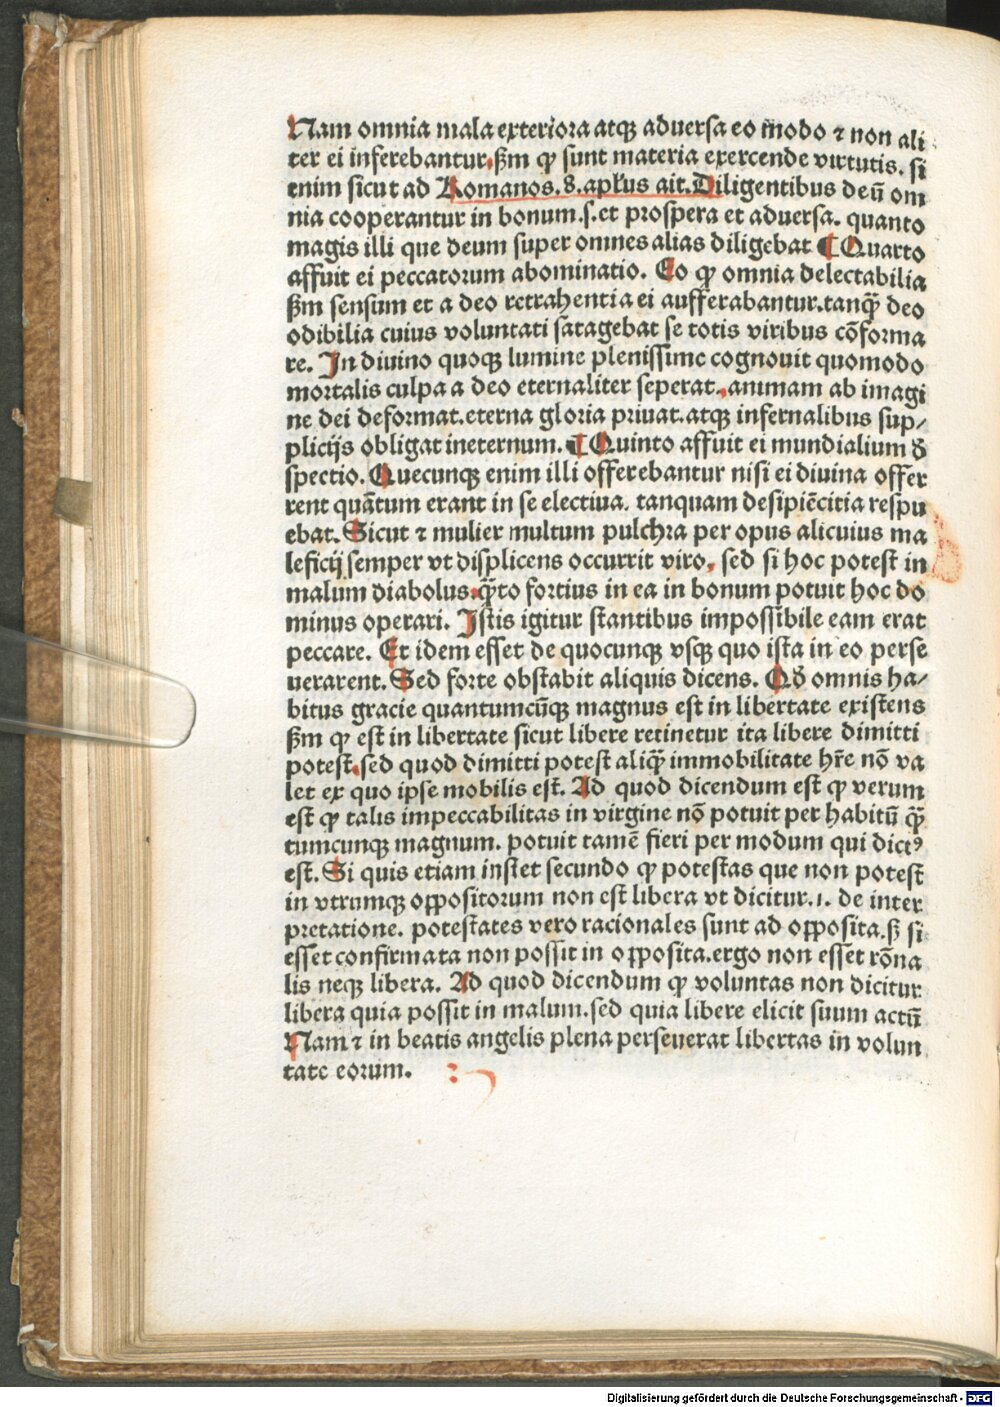 Nam omnia mala exteriora atqꝫ aduersa eo modo ⁊ non ali
ter ei inferebantur. ẞm ꝙ sunt materia exercende virtutis. si
enim sicut ad Romanos. 8. apl̓us ait. Diligentibus deū om
nia cooperantur in bonum .s. et prospera et aduersa. quanto
magis illi que deum super omnes alias diligebat ¶ Quarto
affuit ei peccatorum abominatio. Eo ꝙ omnia delectabilia
ẞm sensum et a deo retrahentia ei aufferabantur. tanq̄ deo
odibilia cuius voluntati satagebat se totis viribus cōforma
re. In diuino quoqꝫ lumine plenissime cognouit quomodo
mortalis culpa a deo eternaliter seperat. animam ab imagi
ne dei deformat. eterna gloria priuat. atqꝫ infernalibus sup⸗
plicijs obligat ineternum. ¶ Quinto affuit ei mundialium ꝺ̓
spectio. Quecunqꝫ enim illi offerebantur nisi ei diuina offer
rent quātum erant in se electiua. tanquam desipiēcitia respu
ebat. Sicut ⁊ mulier multum pulchra per opus alicuius ma
leficij semper vt displicens occurrit viro. sed si hoc potest in
malum diabolus. q̄to fortius in ea in bonum potuit hoc do
minus operari. Istis igitur stantibus impossibile eam erat
peccare. Et idem esset de quocunqꝫ vsqꝫ quo ista in eo perse
uerarent. Sed forte obstabit aliquis dicens. Qꝺ̓ omnis ha⸗
bitus gracie quantumcūqꝫ magnus est in libertate existens
ẞm ꝙ est in libertate sicut libere retinetur ita libere dimitti
potest. sed quod dimitti potest aliq̄ immobilitate hr̄e nō va
let ex quo ipse mobilis est. Ad quod dicendum est ꝙ verum
est ꝙ talis impeccabilitas in virgine nō potuit per habitū q̄
tumcunqꝫ magnum. potuit tamē fieri per modum qui dictꝰ
est. Si quis etiam instet secundo ꝙ potestas que non potest
in vtrumqꝫ oppositorum non est libera vt dicitur .1. de inter
pretatione. potestates vero racionales sunt ad opposita. ẞ si
esset confirmata non possit in opposita. ergo non esset rōna
lis neqꝫ libera. Ad quod dicendum ꝙ voluntas non dicitur
libera quia possit in malum. sed quia libere elicit suum actū
Nam ⁊ in beatis angelis plena perseuerat libertas in volun
tate eorum.
Digitalisierung gefördert durch die Deutsche Forschungsgemeinschaft - DFG